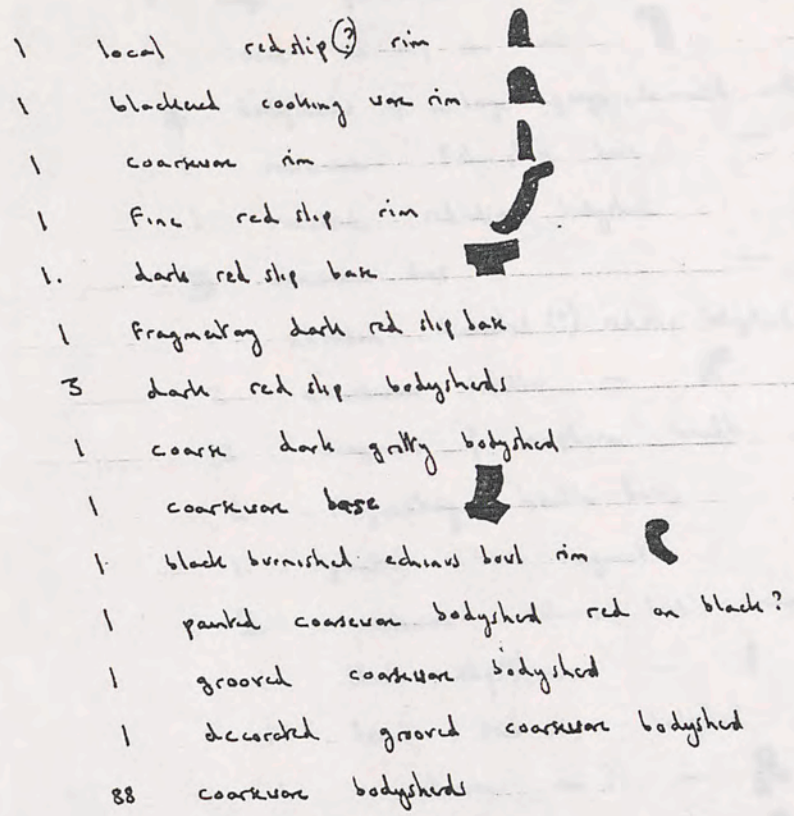 1 local red slip (?) rim
1 blackened cooking ware rim
1 coarseware rim
1 Fine red slip rim
1. dark red slip base
1 Fragmentary dark red slip base
3 dark red slip bodysherds
1 coarse dark gritty bodysherd
1 coarseware base
1 black burnished echinus bowl rim
1 painted coarseware bodysherd red on black?
1 grooved coarseware bodysherd
1 decorated grooved coarseware bodysherd
88 coarseware bodysherds